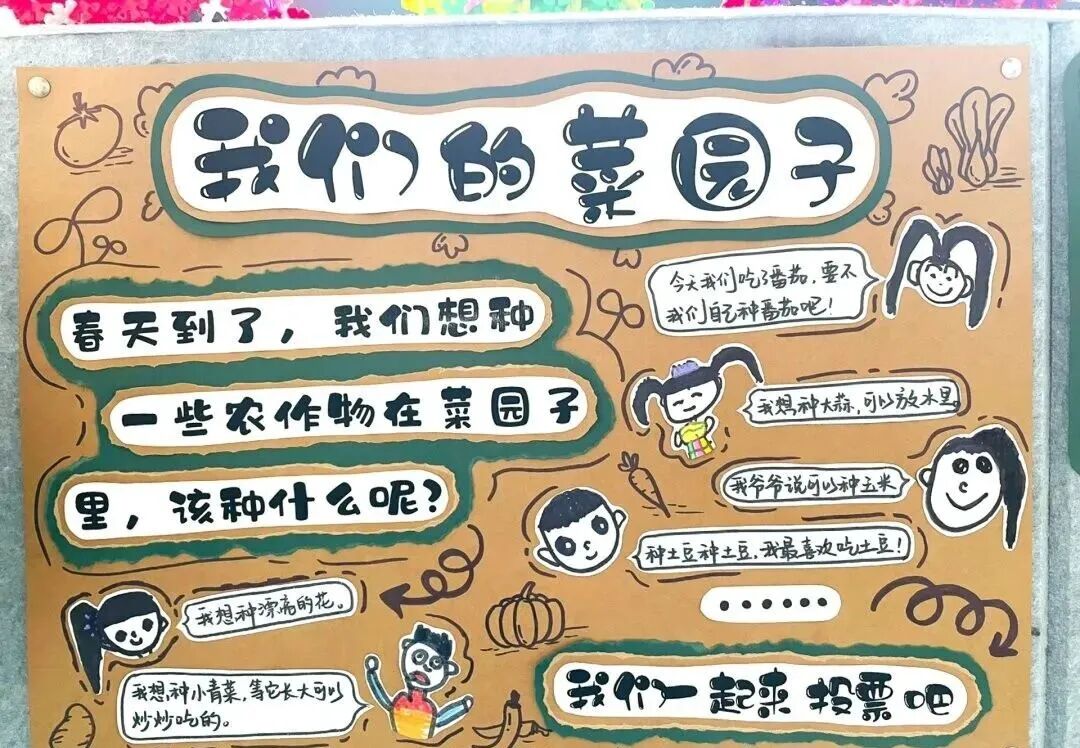 我们的菜园子
春天到了，我们想种
一些农作物在菜园子
里，该种什么呢？
今天我们吃了番茄，要不
我们自己种番茄吧！
我想种大蒜，可以放水里。
我爷爷说可以种玉米
种土豆种土豆，我最喜欢吃土豆！
······
我想种漂亮的花。
我想种小青菜，等它长大可以
炒炒吃的。
我们一起来投票吧